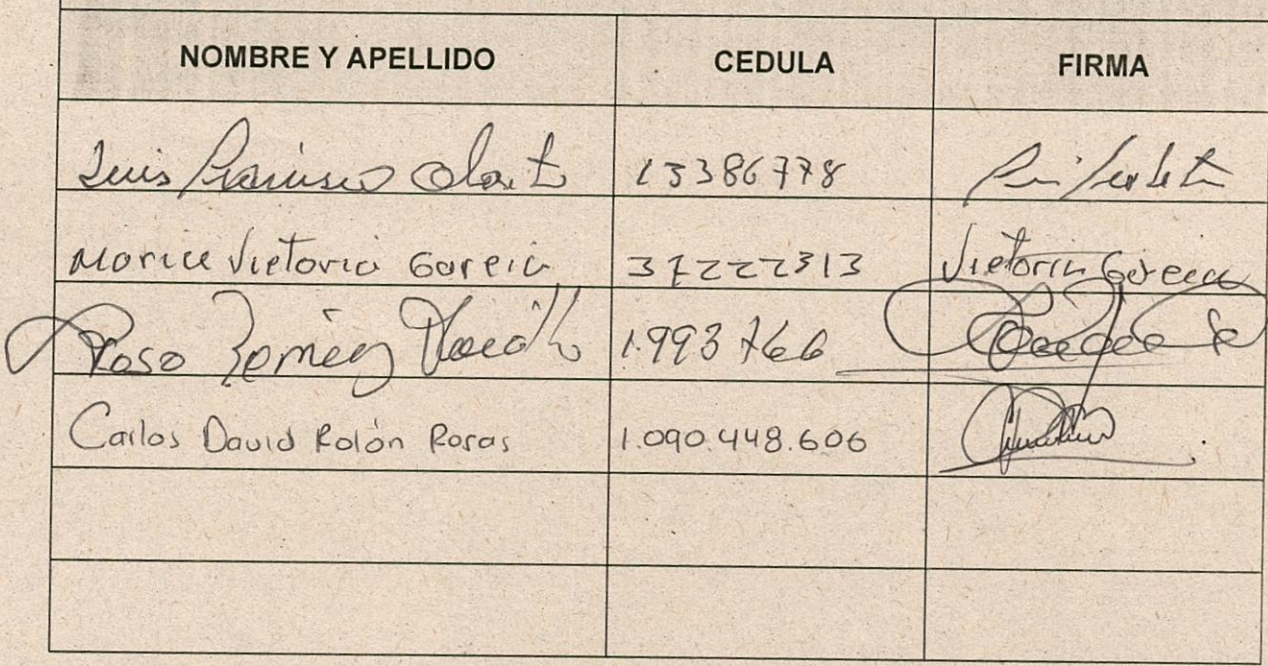 NOMBRE Y APELLIDO CEDULA FIRMA
Luis Francisco 13386778
Maria Victoria Garcia 37222313 Victoria Garcia
Roso 1.993766
Carlos David Rolón Rosas 1.090.448.606